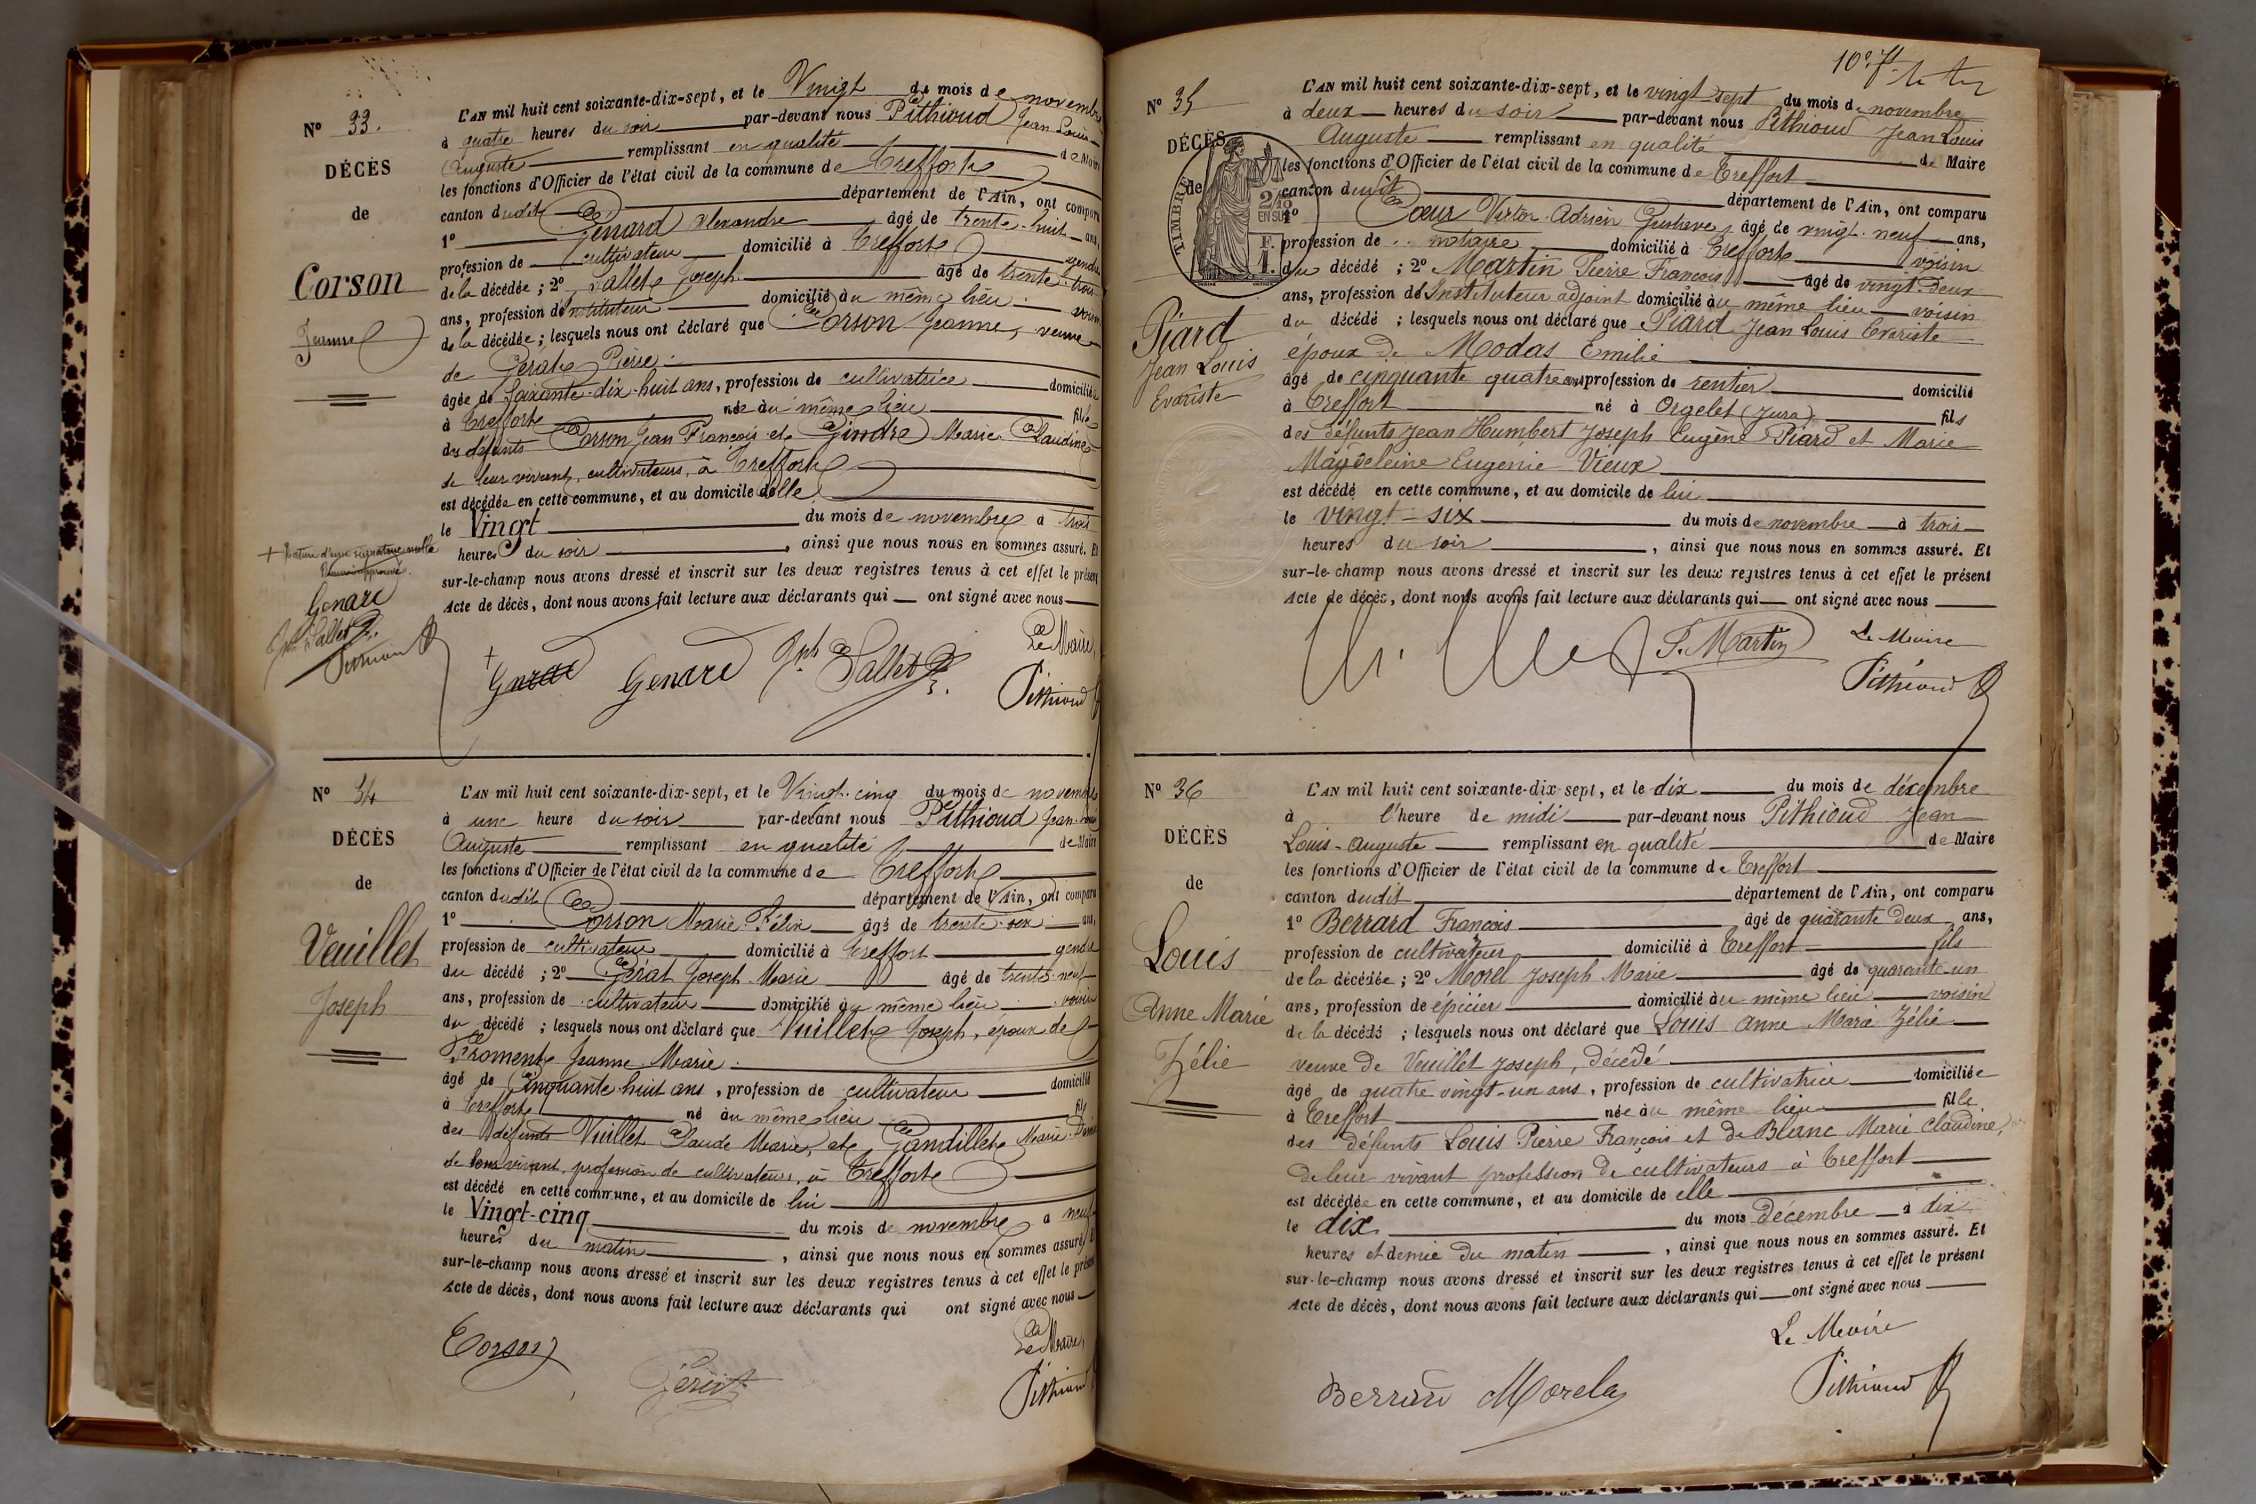 Nº 33.
DÉCÈS
de
Corson
Jeanne
L'AN mil huit cent soixante-dix-sept, et le Vingt du mois de novembre
à quatre heures du soir par-devant nous Pithioud Jean Louis
Auguste remplissant en qualité de Maire
les fonctions d'Officier de l'état civil de la commune de Treffort
canton dudit département de l'Ain, ont comparu
1º Genard Alexandre âgé de trente-huit ans,
profession de cultivateur domicilié à Treffort gendre
de la décédée ; 2º Sallet Joseph âgé de trente-trois
ans, profession d'instituteur domicilié au même lieu voisin
de la décédée ; lesquels nous ont déclaré que Corson Jeanne, veuve
de Gérat Pierre
âgée de soixante-dix-huit ans, profession de cultivatrice domiciliée
à Treffort née au même lieu fille
des défunts Corson Jean François et Gindre Marie Claudine
de leur vivant, cultivateurs, à Treffort
est décédée en cette commune, et au domicile d'elle
le Vingt du mois de novembre à trois
heures du soir, ainsi que nous nous en sommes assuré. Et
sur-le-champ nous avons dressé et inscrit sur les deux registres tenus à cet effet le présent
Acte de décès, dont nous avons fait lecture aux déclarants qui ont signé avec nous
+ Rature d'une signature nulle
Genard
Jph Sallet
Pithioud
Le Maire,
+ Genard Genard Jph Sallet Pithioud
Nº 34
DÉCÈS
de
Veuillet
Joseph
L'AN mil huit cent soixante-dix-sept, et le Vingt-cinq du mois de novembre
à une heure du soir par-devant nous Pithioud Jean-Louis
Auguste remplissant en qualité de Maire
les fonctions d'Officier de l'état civil de la commune de Treffort
canton dudit département de l'Ain, ont comparu
1º Corson Marie Félix âgé de trente-six ans,
profession de cultivateur domicilié à Treffort gendre
du décédé ; 2º Gérat Joseph Marie âgé de trente-neuf
ans, profession de cultivateur domicilié au même lieu voisin
du décédé ; lesquels nous ont déclaré que Vuillet Joseph, époux de
Froment Jeanne Marie
âgé de Cinquante-huit ans, profession de cultivateur domicilié
à Treffort né au même lieu fils
des défunts Vuillet Claude Marie, et Gandillet Marie
de leur vivant, profession de cultivateurs, à Treffort
est décédé en cette commune, et au domicile de lui
le Vingt-cinq du mois de novembre à neuf
heures du matin, ainsi que nous nous en sommes assuré. Et
sur-le-champ nous avons dressé et inscrit sur les deux registres tenus à cet effet le présent
Acte de décès, dont nous avons fait lecture aux déclarants qui ont signé avec nous
Le Maire,
Corson Gérat Pithioud
10e f.
Nº 35
DÉCÈS
de
TIMBRE
2/10
EN SUS
F.
1.
Piard
Jean Louis
Evariste
L'AN mil huit cent soixante-dix-sept, et le vingt-sept du mois de novembre
à deux heures du soir par-devant nous Pithioud Jean Louis
Auguste remplissant en qualité de Maire
les fonctions d'Officier de l'état civil de la commune de Treffort
canton dudit département de l'Ain, ont comparu
1º Cœur Victor Adrien Gustave, âgé de vingt-neuf ans,
profession de notaire domicilié à Treffort voisin
du décédé ; 2º Martin Pierre François âgé de vingt-deux
ans, profession d'Instituteur adjoint domicilié au même lieu voisin
du décédé ; lesquels nous ont déclaré que Piard Jean Louis Evariste
époux de Modas Emilie
âgé de cinquante quatre ans profession de rentier domicilié
à Treffort né à Orgelet (Jura) fils
des défunts Jean Humbert Joseph Eugène Piard et Marie
Magdeleine Eugenie Vieux
est décédé en cette commune, et au domicile de lui
le vingt-six du mois de novembre à trois
heures du soir, ainsi que nous nous en sommes assuré. Et
sur-le-champ nous avons dressé et inscrit sur les deux registres tenus à cet effet le présent
Acte de décès, dont nous avons fait lecture aux déclarants qui ont signé avec nous
F. Martin Le Maire
Pithioud
Nº 36
DÉCÈS
de
Louis
Anne Marie
Zélie
L'AN mil huit cent soixante-dix-sept, et le dix du mois de décembre
à l'heure de midi par-devant nous Pithioud Jean
Louis-Auguste remplissant en qualité de Maire
les fonctions d'Officier de l'état civil de la commune de Treffort
canton dudit département de l'Ain, ont comparu
1º Berrard François âgé de quarante deux ans,
profession de cultivateur domicilié à Treffort fils
de la décédée ; 2º Morel Joseph Marie âgé de quarante-un
ans, profession de épicier domicilié au même lieu voisin
de la décédé ; lesquels nous ont déclaré que Louis Anne Marie Zélie
veuve de Veuillet Joseph, décédé
âgé de quatre vingt-un ans, profession de cultivatrice domiciliée
à Treffort née au même lieu fille
des défunts Louis Pierre François et de Blanc Marie Claudine,
de leur vivant profession de cultivateurs à Treffort
est décédée en cette commune, et au domicile de elle
le dix du mois décembre à dix
heures et demie du matin, ainsi que nous nous en sommes assuré. Et
sur-le-champ nous avons dressé et inscrit sur les deux registres tenus à cet effet le présent
Acte de décès, dont nous avons fait lecture aux déclarants qui ont signé avec nous
Le Maire
Berrard Morel Pithioud